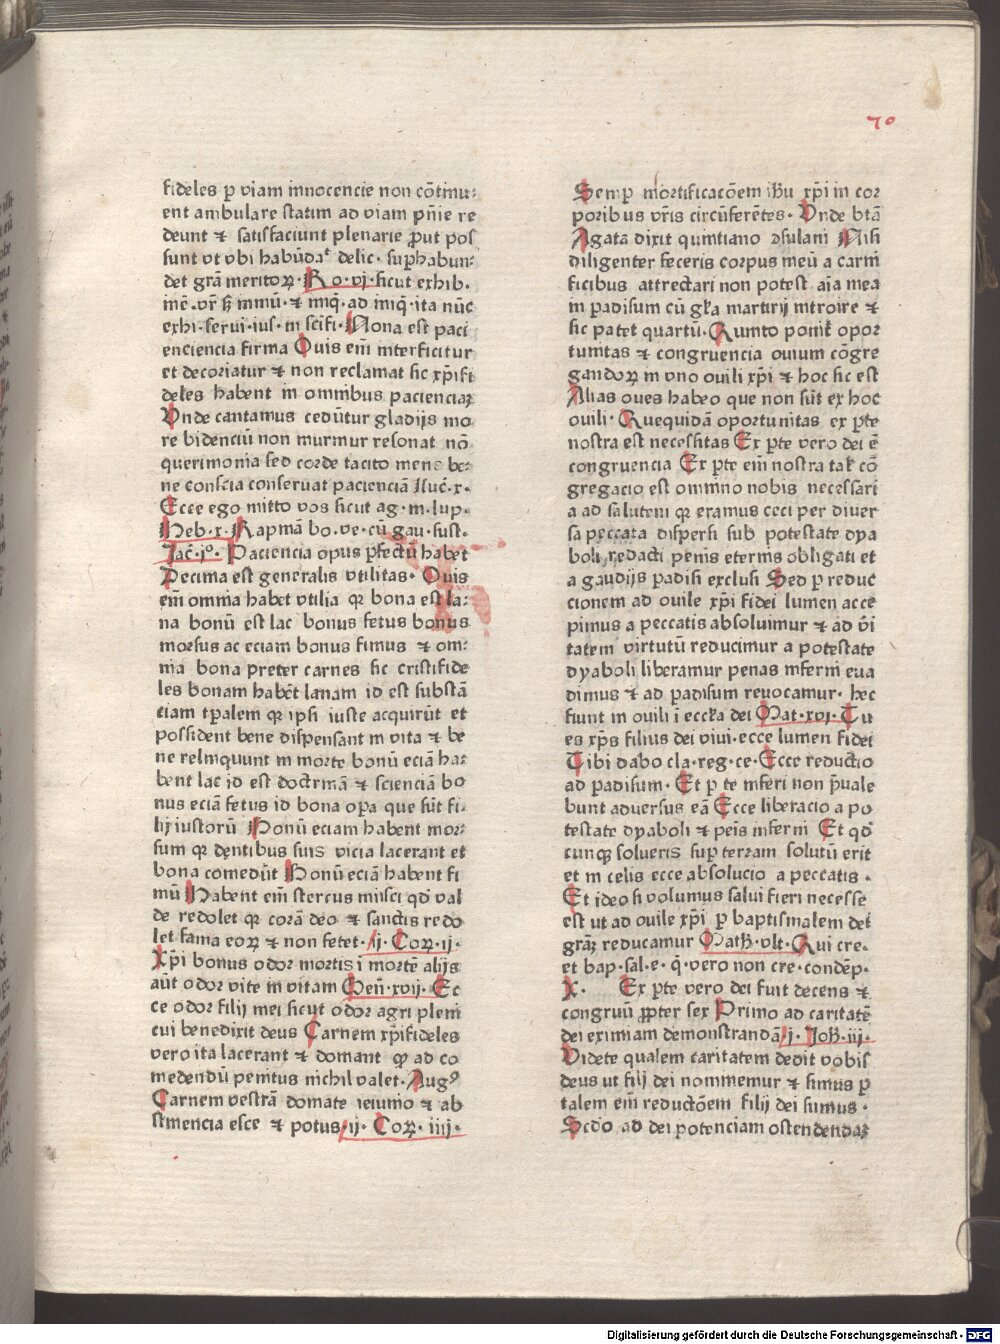 70
fideles ꝑ viam innocencie non cōtinu⸗
ent ambulare statim ad viam pn̄ie re
deunt ⁊ satisfaciunt plenarie ꝓut pos
sunt vt vbi habūdaᵗ delic· suꝑhabun⸗
det grā meritoꝝ· Ro·vj·sicut exhib·
mē·vr̄ immū·⁊ iniq̄·ad iniq̄·ita nūc
exhi·serui·ius·in scīfi·Nona est paci
enciencia firma Ouis em̄ interficitur
et decoriatur ⁊ non reclamat sic xp̄ifi
deles habent in omnibus pacienciaꝫ
Vnde cantamus cedūtur gladijs mo
re bidenciū non murmur resonat nō
querimonia sed corde tacito mens be⸗
ne conscia conseruat pacienciā Luc̄·x·
Ecce ego mitto vos sicut ag·in·lup·
Heb·x·Rapinā bo·ve·cū gau·sust·
Jac̄·jº· Paciencia opus ꝑfectū habet
Decima est generalis vtilitas· Ouis
em̄ omnia habet vtilia qꝛ bona est la⸗
na bonū est lac bonus fetus bonus
morsus ac eciam bonus fimus ⁊ om⸗
nia bona preter carnes sic cristifide
les bonam habēt lanam id est substā
ciam tꝑalem qꝛ ipsi iuste acquirūt et
possident bene dispensant in vita ⁊ be
ne relinquunt in morte bonū eciā ha⸗
bent lac id est doctrinā ⁊ scienciā bo
nus eciā fetus id bona oꝑa que sūt fi⸗
lij iustorū Bonū eciam habent mor⸗
sum qꝛ dentibus suis vicia lacerant et
bona comedūt Bonū eciā habent fi
mū Habent em̄ stercus misci qd̄ val
de redolet qꝛ corā deo ⁊ sanctis redo
let fama eoꝝ ⁊ non fetet· ij· Coꝝ·ij·
Xp̄i bonus odor mortis ī mortē alijs
aūt odor vite in vitam Gen̄·xvij· Ec
ce odor filij mei sicut odor agri pleni
cui benedixit deus Carnem xp̄ifideles
vero ita lacerant ⁊ domant ꝙ ad co
medendū penitus nichil valet·Augꝰ
Carnem vestrā domate ieiunio ⁊ ab
stinencia esce ⁊ potus·ij· Coꝝ· iiij·
Semꝑ mortificacōem ihū xp̄i in cor
poribus vr̄is circūferētes· Vnde btā
Agata dixit quintiano ↄsulani Nisi
diligenter feceris corpus meū a carni
ficibus attrectari non potest aīa mea
in ꝑadisum cū gl̄ia martirij introire ⁊
sic patet quartū·Quinto poniť opor
tunitas ⁊ congruencia ouium cōgre
gandoꝝ in vno ouili xp̄i ⁊ hoc sic est
Alias oues habeo que non sūt ex hoc
ouili·Quequidā oportunitas ex ꝑte
nostra est necessitas Ex ꝑte vero dei ē
congruencia Ex ꝑte em̄ nostra tal̄ cō
gregacio est omnino nobis necessari
a ad salutem qꝛ eramus ceci per diuer
sa peccata dispersi sub potestate dya
boli redacti penis eternis obligati et
a gaudijs ꝑadisi exclusi Sed ꝑ reduc
cionem ad ouile xp̄i fidei lumen acce
pimus a peccatis absoluimur ⁊ ad vi
tatem virtutū reducimur a potestate
dyaboli liberamur penas inferni eua
dimus ⁊ ad ꝑadisum reuocamur· hec
fiunt in ouili ī eccl̄ia dei Mat·xvj·Tu
es xp̄s filius dei viui·ecce lumen fidei
Tibi dabo cla·reg·ce·Ecce reductio
ad ꝑadisum· Et ꝑ te inferi non p̄uale
bunt aduersus eā Ecce liberacio a po
testate dyaboli ⁊ penis inferni Et qd̄
cunqꝫ solueris suꝑ terram solutū erit
et in celis ecce absolucio a peccatis ·
Et ideo si volumus salui fieri necesse
est ut ad ouile xp̄i ꝑ baptismalem dei
grāꝫ reducamur Math̄·vlt·Qui cre·
et bap·sal·e· q̄·vero non cre·condēp·
X· Ex ꝑte vero dei fuit decens ⁊
congruū ꝓpter sex Primo ad caritatē
dei eximiam demonstrandā j· Joh̄·iij·
Videte qualem caritatem dedit vobis
deus ut filij dei nominemur ⁊ simus ꝑ
talem em̄ reductōem filij dei sumus ·
Scdo ad dei potenciam ostendendaꝫ
Digitalisierung gefördert durch die Deutsche Forschungsgemeinschaft - DFG